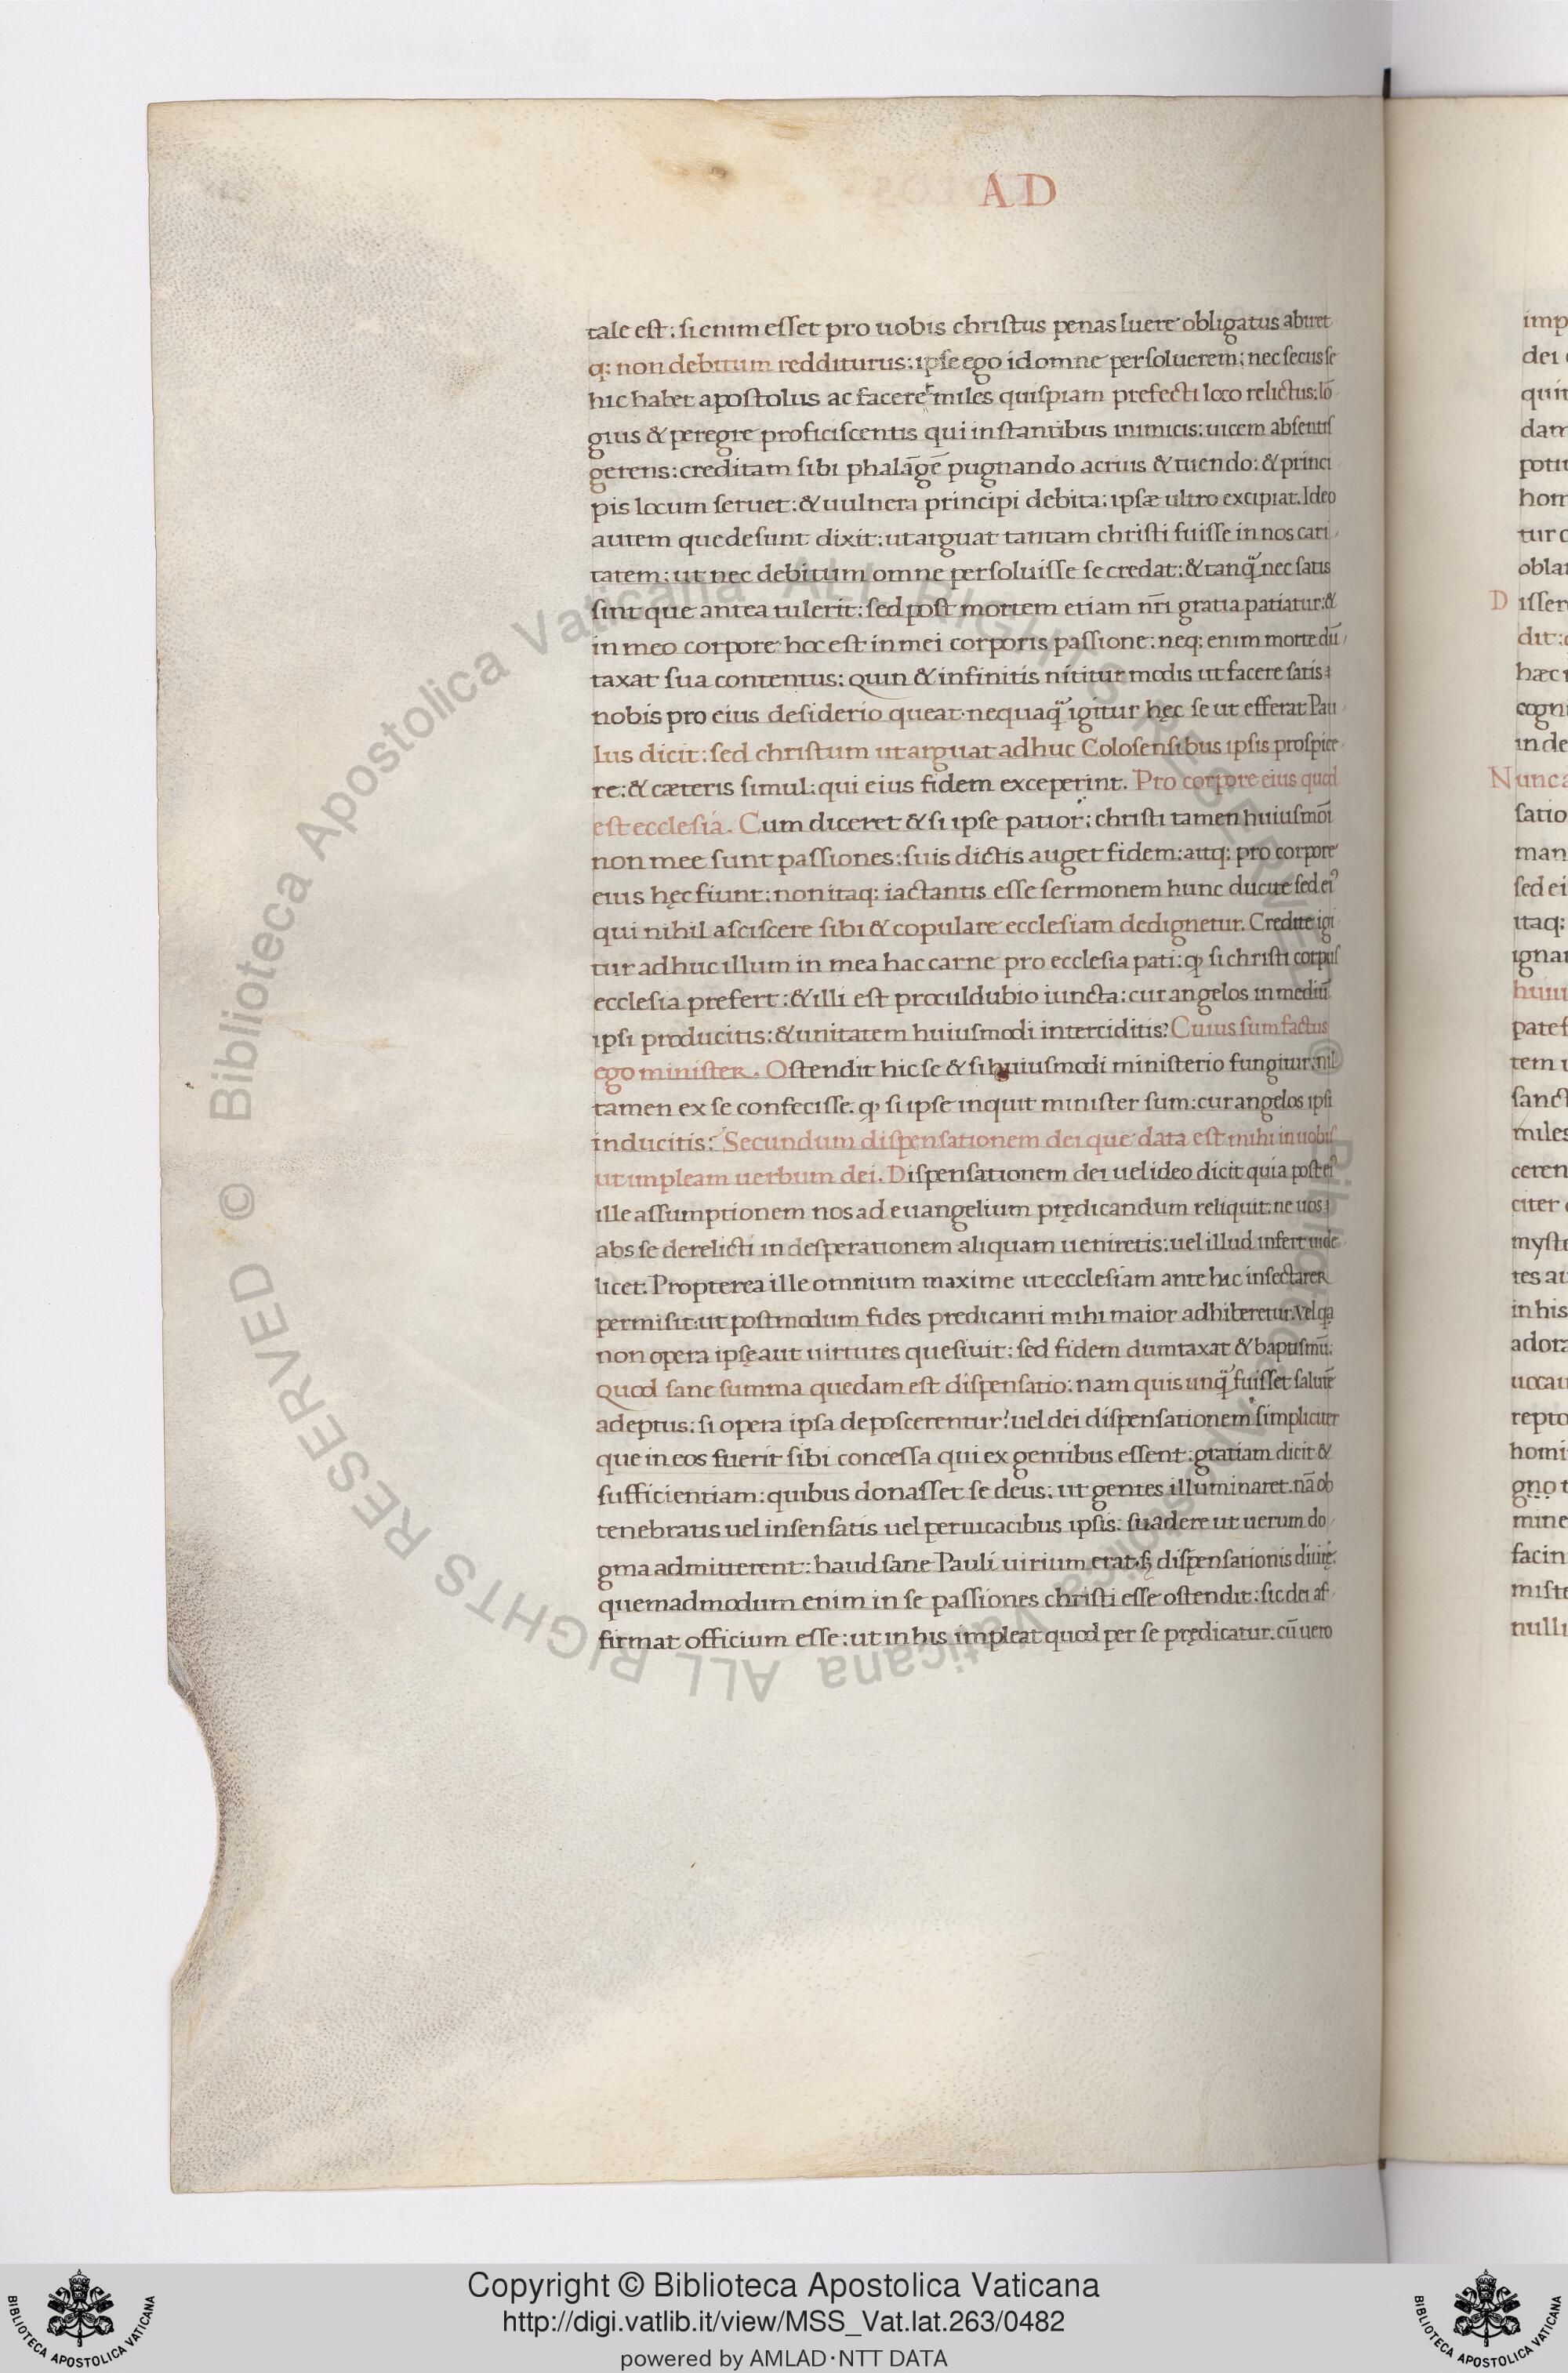 AD
tale est: si enim esset pro uobis christus penas luere obligatus abiret
q; non debitum redditurus: ipse ego id omne persoluerem: nec secus se
hic habet apostolus ac facere miles quispiam prefecti loco relictus: lō
gius & peregre proficiscentis qui instantibus inimicis: uicem absentis
gerens: creditam sibi phalāgē pugnando acrius & tuendo: & princi
pis locum seruet: & uulnera principi debita: ipsæ ultro excipiat. Ideo
autem que desunt dixit: ut arguat tantam christi fuisse in nos cari
tatem: ut nec debitum omne persoluisse se credat: & tanq̃ nec satis
sint que antea tulerit: sed post mortem etiam nr̄i gratia patiatur: &
in meo corpore hoc est in mei corporis passione: neq; enim morte dū
taxat sua contentus: quin & infinitis nititur modis ut facere satis
nobis pro eius desiderio queat. nequaq̃ igitur hęc se ut efferat Pau
lus dicit: sed christum ut arguat adhuc Colosensibus ipsis prospice
re: & cæteris simul: qui eius fidem exceperint. Pro corpore eius quod
est ecclesia. Cum diceret & si ipse patior: christi tamen huiusmōi
non mee sunt passiones: suis dictis auget fidem: atq; pro corpore
eius hęc fiunt: non itaq; iactantis esse sermonem hunc ducite sed ei⁹
qui nihil asciscere sibi & copulare ecclesiam dedignetur. Credite igi
tur adhuc illum in mea hac carne pro ecclesia pati: ꝙ si christi corpus
ecclesia prefert: & illi est proculdubio iuncta: cur angelos in mediū
ipsi producitis: & unitatem huiusmodi interciditis? Cuius sum factus
ego minister. Ostendit hic se & si huiusmodi ministerio fungitur: nil
tamen ex se confecisse. ꝙ si ipse inquit minister sum: cur angelos ipsi
inducitis: Secundum dispensationem dei que data est mihi in uobis
ut impleam uerbum dei. Dispensationem dei uel ideo dicit quia post ei⁹
ille assumptionem nos ad euangelium prędicandum reliquit: ne uos
abs se derelicti in desperationem aliquam ueniretis: uel illud infert uide
licet. Propterea ille omnium maxime ut ecclesiam ante hac insectarer
permisit: ut postmodum fides predicanti mihi maior adhiberetur. Vel qa
non opera ipsę aut uirtutes quesiuit: sed fidem dumtaxat & baptismū:
Quod sane summa quedam est dispensatio: nam quis unq̃ fuisset salutē
adeptus: si opera ipsa deposcerentur? uel dei dispensationem simpliciter
que in eos fuerit sibi concessa qui ex gentibus essent: gratiam dicit &
sufficientiam: quibus donasset se deus: ut gentes illuminaret. nā ob
tenebratis uel insensatis uel peruicacibus ipsis: suadere ut uerum do
gma admitterent: haud sane Pauli uirium erat. sȝ dispensationis diuinę:
quemadmodum enim in se passiones christi esse ostendit: sic dei af
firmat officium esse: ut in his impleat quod per se prędicatur. cū uero
imp
dei
quin
dam
potu
hom
tur
obla
Disser
dit:
hæc
cogni
in de
Nunc
satio
man
sed ei
itaq;
ignar
huiu
patef
tem
sanct
miles
ceren
citer
myste
tes
in his
adora
uocau
repto
homi
gno
mine
facin
miste
nulli
© Biblioteca Apostolica Vaticana ALL RIGHTS RESERVED © Biblioteca Apostolica Vaticana ALL RIGHTS RESERVED
Copyright © Biblioteca Apostolica Vaticana
http://digi.vatlib.it/view/MSS_Vat.lat.263/0482
powered by AMLAD·NTT DATA
BIBLIOTECA APOSTOLICA VATICANA
BIBLIOTECA APOSTOLICA VATICANA